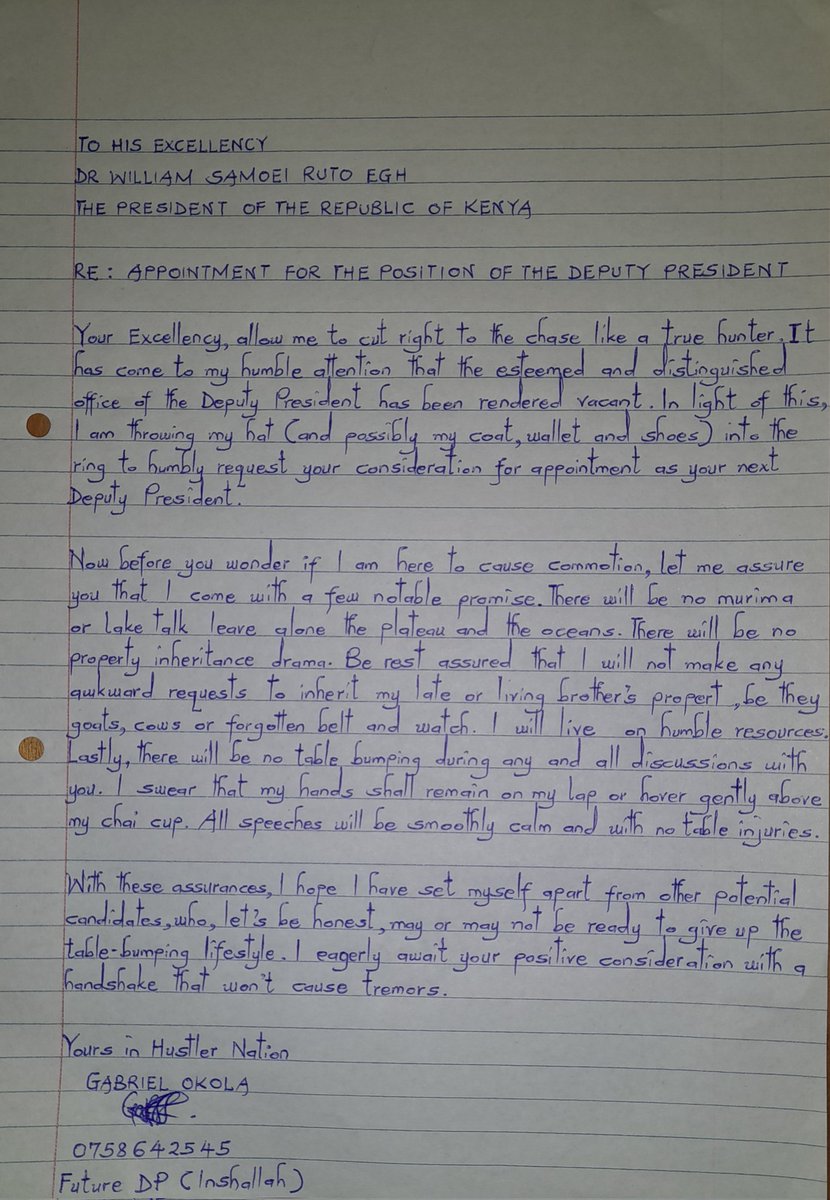 TO HIS EXCELLENCY
DR WILLIAM SAMOEI RUTO EGH
THE PRESIDENT OF THE REPUBLIC OF KENYA
RE: APPOINTMENT FOR THE POSITION OF THE DEPUTY PRESIDENT
Your Excellency, allow me to cut right to the chase like a true hunter. It
has come to my humble attention that the esteemed and distinguished
office of the Deputy President has been rendered vacant. In light of this,
I am throwing my hat (and possibly my coat, wallet and shoes) into the
ring to humbly request your consideration for appointment as your next
Deputy President.
Now before you wonder if I am here to cause commotion, let me assure
you that I come with a few notable promise. There will be no murima
or Lake talk leave alone the plateau and the oceans. There will be no
property inheritance drama. Be rest assured that I will not make any
awkward requests to inherit my late or living brother's propert, be they
goats, cows or forgotten belt and watch. I will live on humble resources.
Lastly, there will be no table bumping during any and all discussions with
you. I swear that my hands shall remain on my lap or hover gently above
my chai cup. All speeches will be smoothly calm and with no table injuries.
With these assurances, I hope I have set myself apart from other potential
candidates, who, let's be honest, may or may not be ready to give up the
table-bumping lifestyle. I eagerly await your positive consideration with a
handshake that won't cause tremors.
Yours in Hustler Nation
GABRIEL OKOLA
0758642545
Future DP (Inshallah)